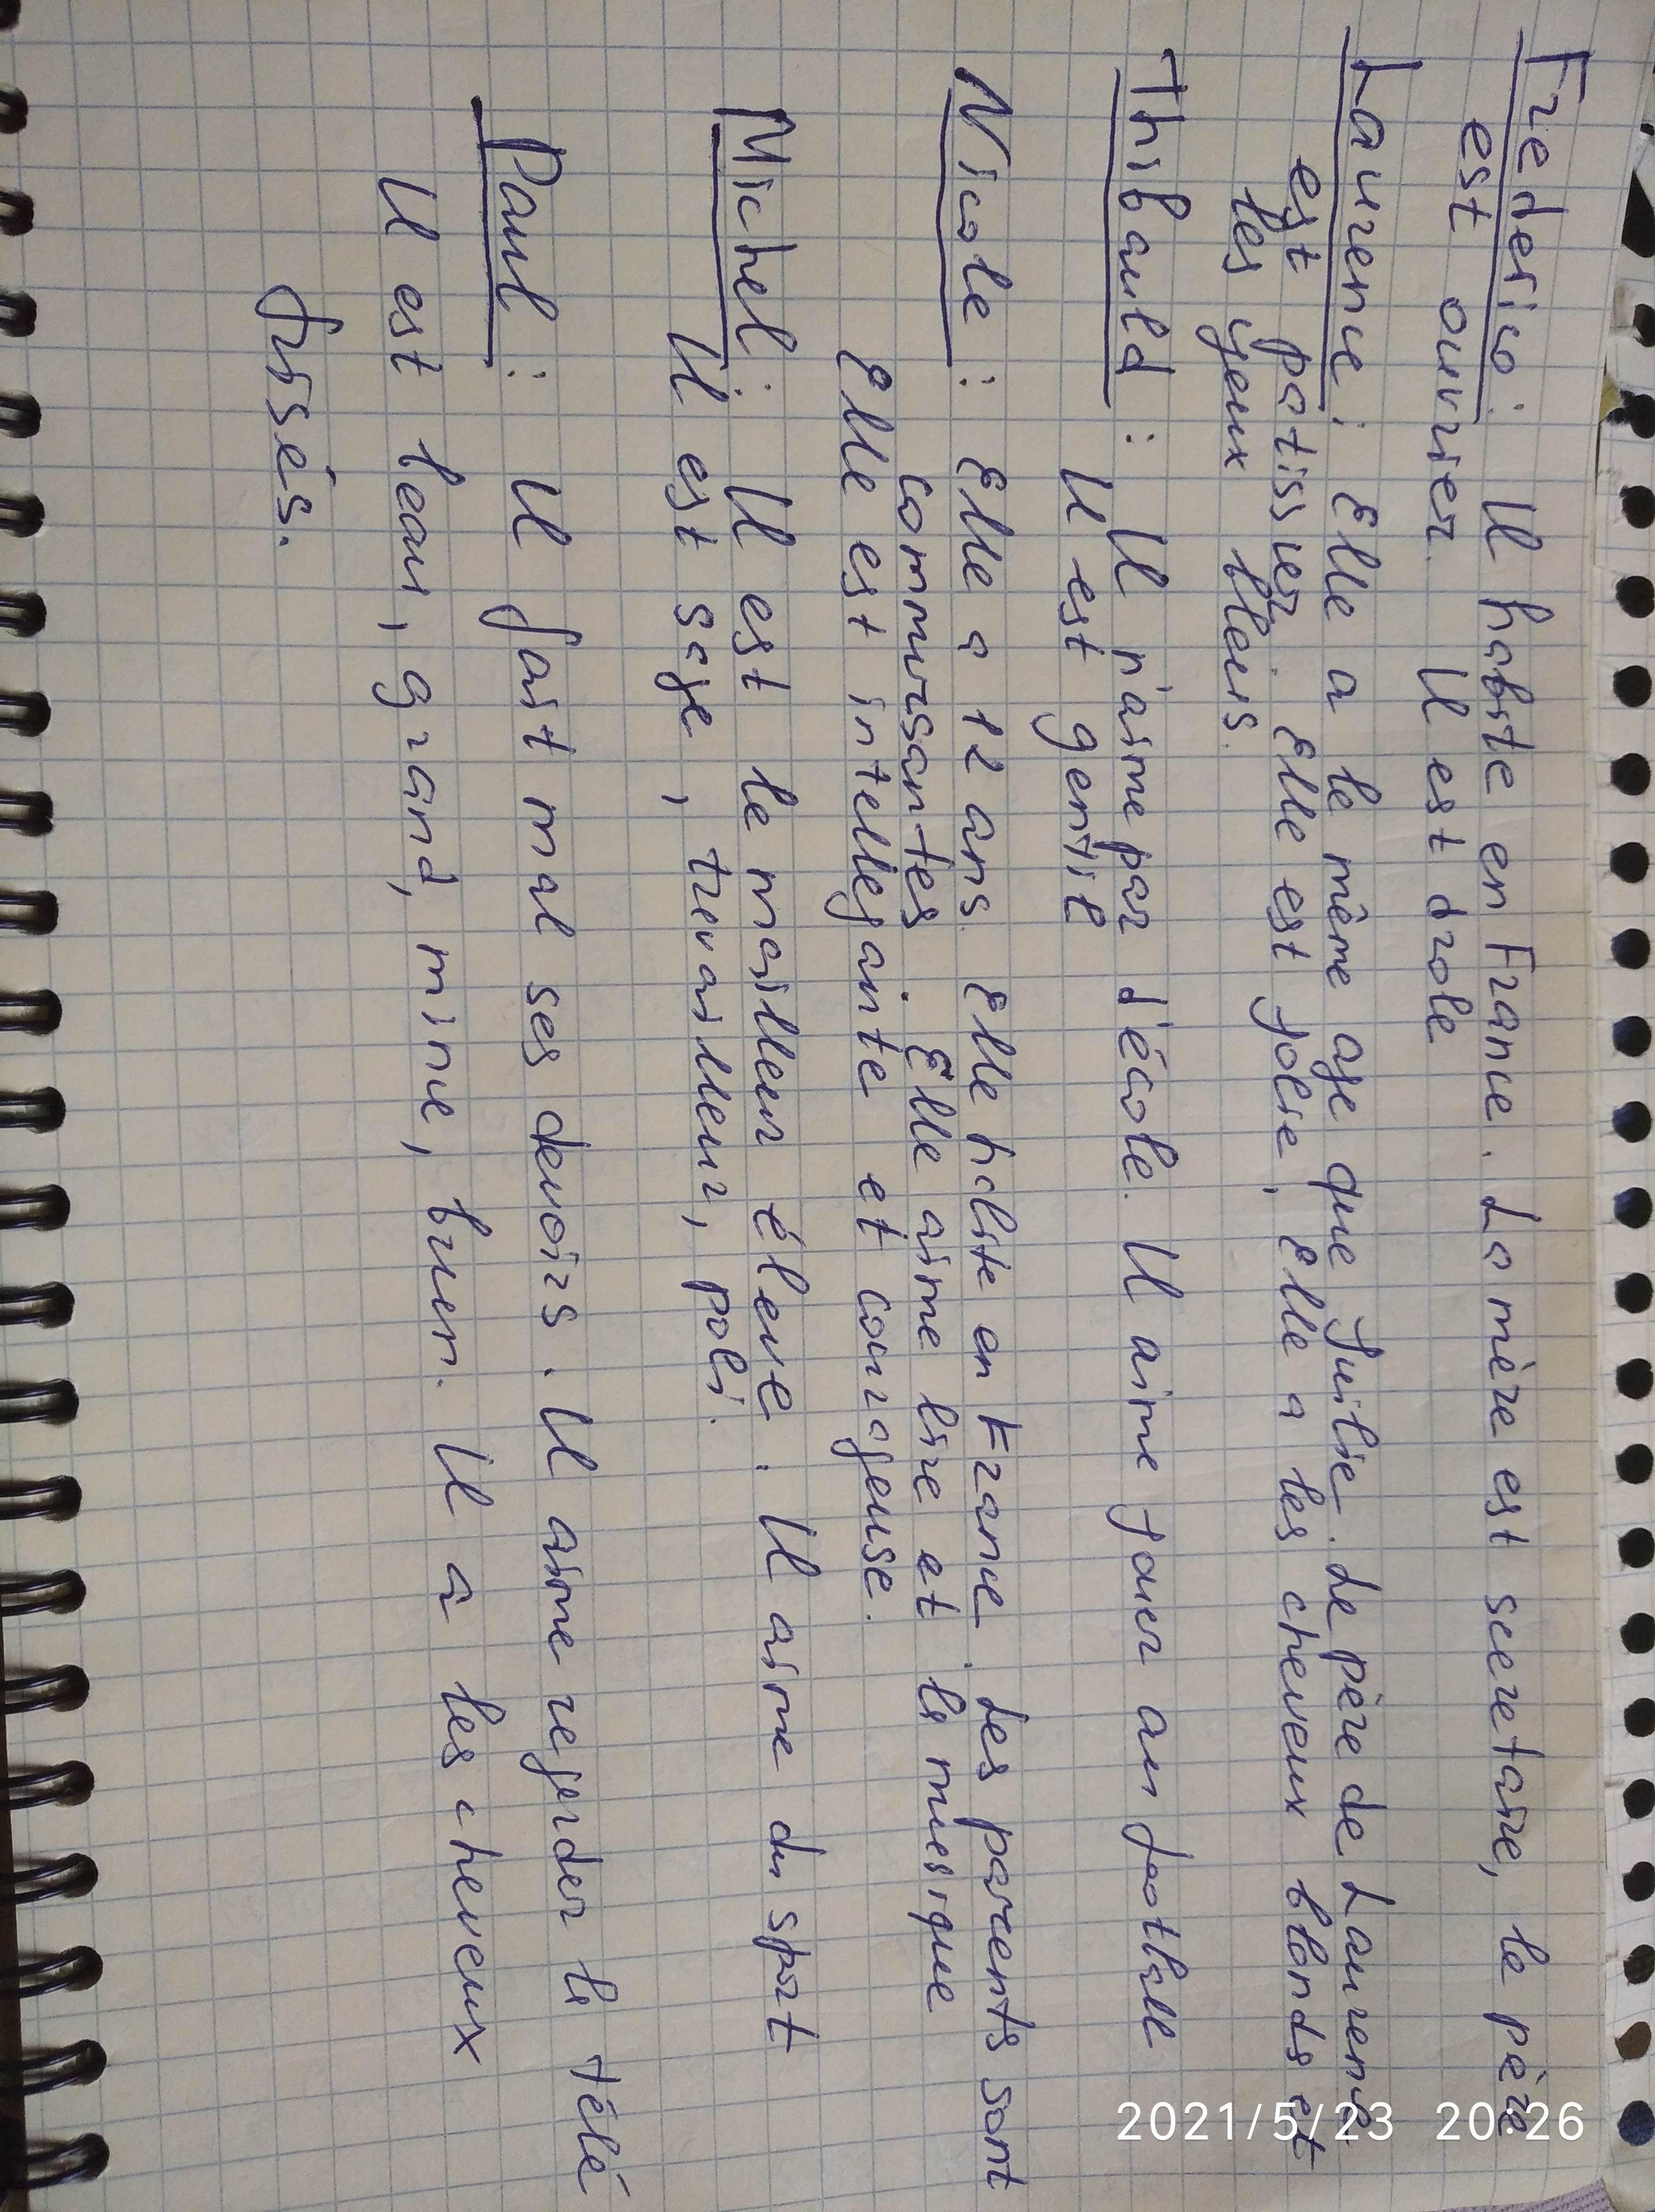 Frederico: Il habite en France. La mère est secretaire, le père
est ouvrier. Il est drole
Laurence: Elle a le même age que Julie. Le père de Laurence
est patissier. Elle est jolie, Elle a les cheveux blonds et
les yeux bleus.
Thibauld: Il n'aime par d'école. Il aime jouer au footbale
Il est gentil
Nicole: Elle a 12 ans. Elle habite en France. Les parents sont
commersantes. Elle aime lire et la musique
Elle est intellegante et couragense.
Michel: Il est le mailleur éleve. Il aime du sport
Il est sage, travailleur, poli.
Paul: Il fait mal ses devoirs. Il aime regarder la télé
Il est beau, grand, mine, brun. Il a les cheveux
frisés.
2021/5/23 20:26